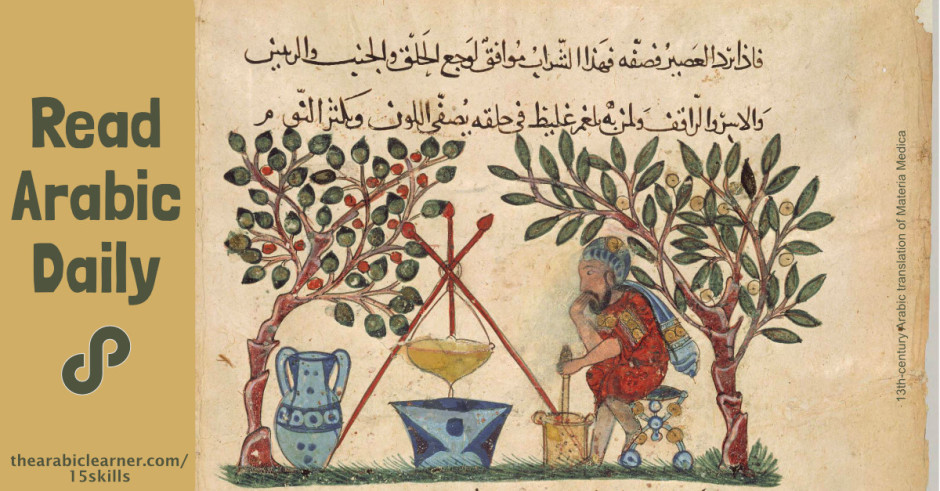 Read
Arabic
Daily
thearabiclearner.com/
15skills
فاذا برد العصيرُ فصفّه فهذا الشراب موافق لوجع الحَلْق والجنب
ولمن به بلغم غليظ في حلقه يُصفّي اللون ويكثر النّوم
13th-century Arabic translation of Materia Medica